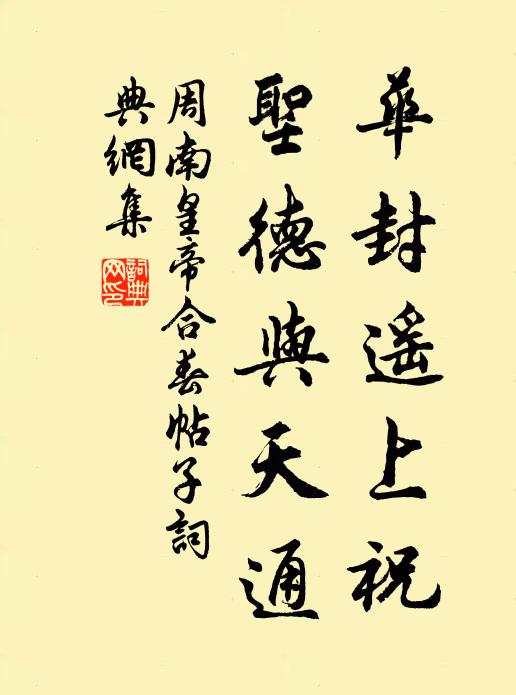 華封遥上祝
聖德與天通
周南皇帝合春帖子詞
典網集
詞典網印